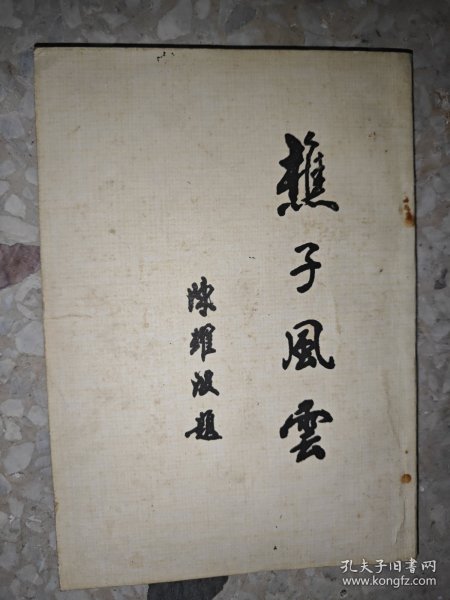 樵子風雲
陳耀波題
孔夫子旧书网
www.kongfz.com